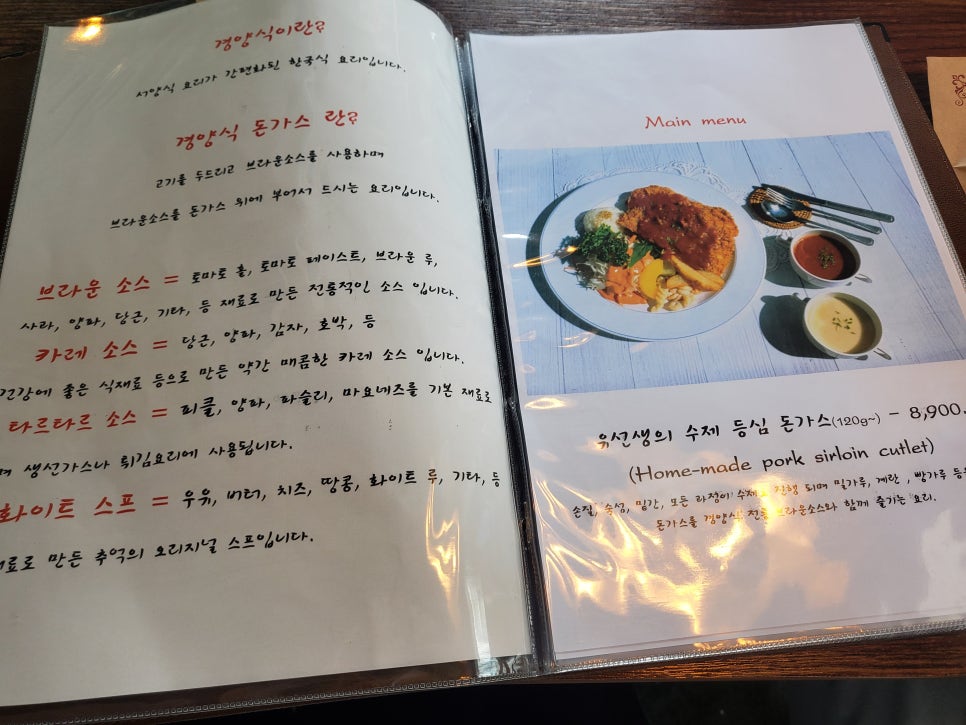 경양식이란?
서양식 요리가 간편화된 한국식 요리입니다.
경양식 돈가스 란?
고기를 두드리고 브라운소스를 사용하며
브라운소스를 돈가스 위에 부어서 드시는 요리입니다.
브라운 소스 = 토마토 홀, 토마토 페이스트, 브라운 루,
사라, 양파, 당근, 기타, 등 재료로 만든 전통적인 소스 입니다.
카레 소스 = 당근, 양파, 감자, 호박, 등
건강에 좋은 식재료 등으로 만든 약간 매콤한 카레 소스 입니다.
타르타르 소스 = 피클, 양파, 파슬리, 마요네즈를 기본 재료로
며 생선가스나 튀김요리에 사용됩니다.
화이트 스프 = 우유, 버터, 치즈, 땅콩, 화이트 루, 기타, 등
재료로 만든 추억의 오리지널 스프입니다.
Main menu
유선생의 수제 등심 돈가스(120g~) - 8,900.
(Home-made pork sirloin cutlet)
손질, 숙성, 밑간, 모든 과정이 수제로 진행 되며 밀가루, 계란 , 빵가루 등을
돈가스를 경양식 전통 브라운소스와 함께 즐기는 요리.